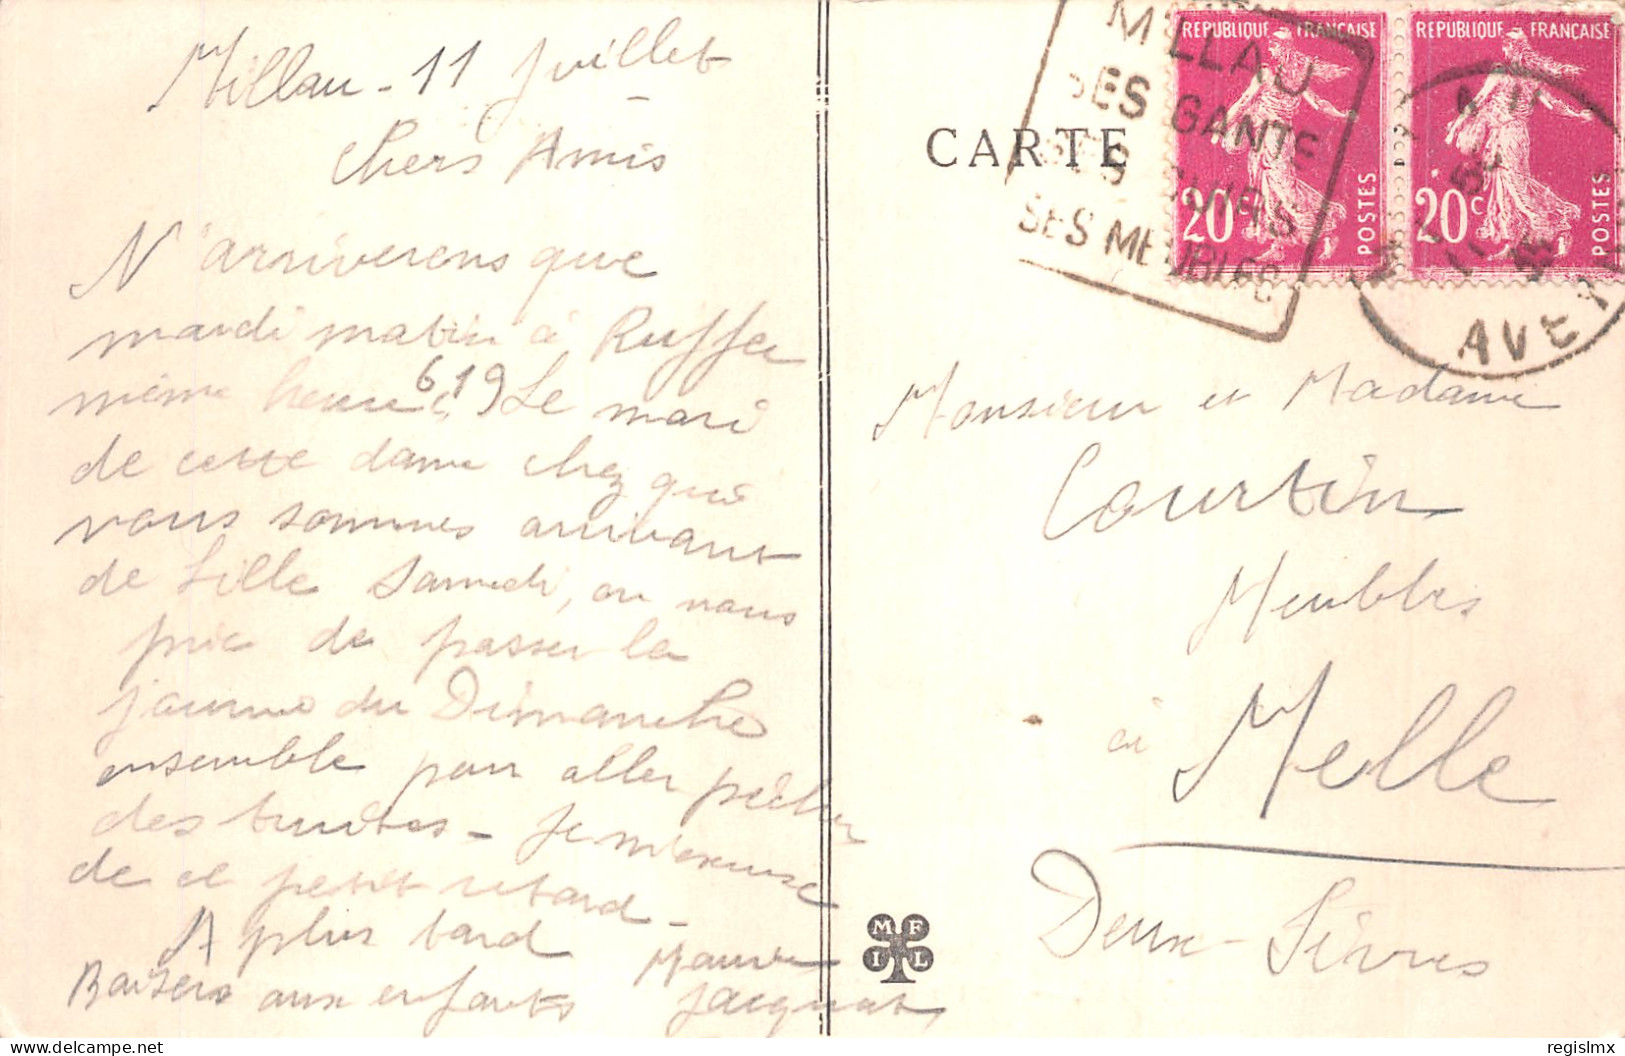 Millau - 11 Juillet
Chers Amis
N'arriverons que
mardi matin à Ruffec
même heure 6,19 Le mari
de cette dame chez qui
nous sommes arrivant
de Lille Samedi, on nous
prie de passer la
journée du Dimanche
ensemble pour aller pêcher
des truites - Je m'excuse
de ce petit retard -
A plus tard
Baisers aux enfants
CARTE
MILLAU
SES GANTS
SES CUIRS
SES MEUBLES
REPUBLIQUE FRANÇAISE
20c POSTES
REPUBLIQUE FRANÇAISE
20c POSTES
AVEYRON
Monsieur et Madame
Courtin
Meubles
à Melle
Deux-Sèvres
M F
I L
regislmx